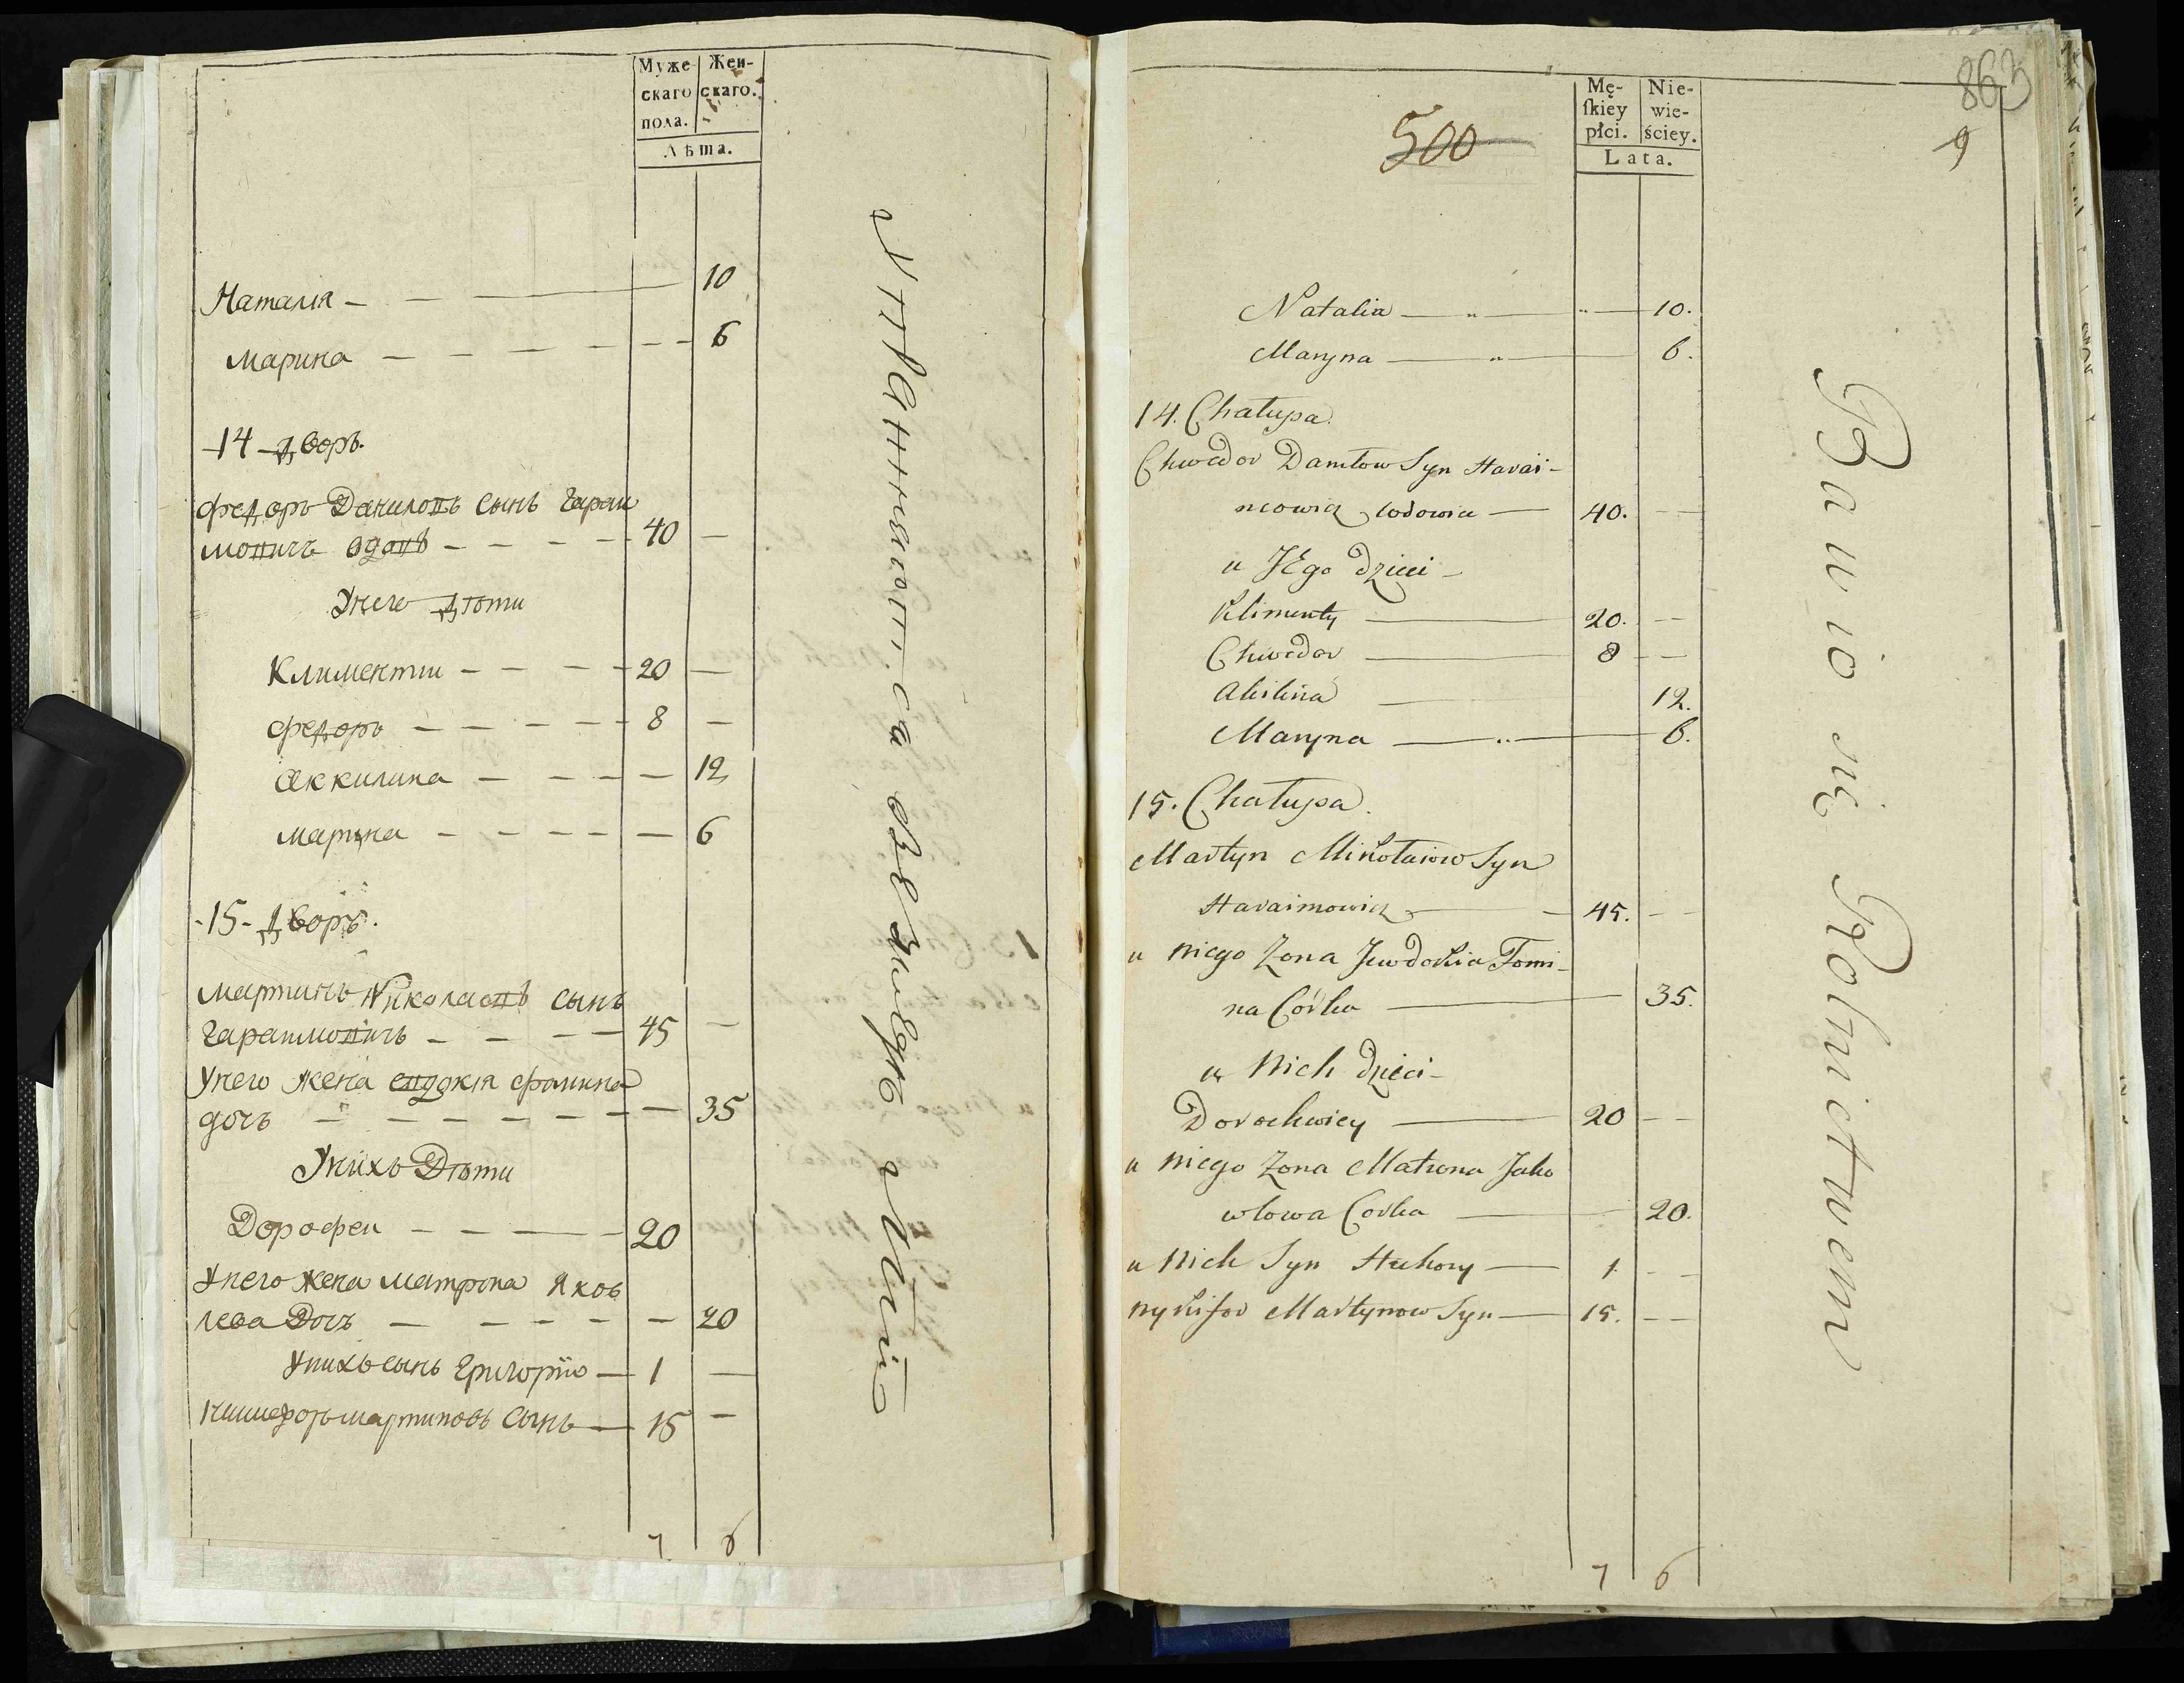 Муже-
скаго
пола.
Жен-
скаго.
Лѣта.
Наталія 10
Марина 6
14 дворъ.
Федоръ Даниловъ сынъ Гараи
мовичъ вдовъ 40
Унего дѣти
Климентии 20
Федоръ 8
Аккилина 12
Марина 6
15 дворъ.
Мартинъ Николаевъ сынъ
Гараимовичъ 45
Унего жена Евдокія Фомина
дочь 35
Унихъ Дѣти
Дорофеи 20
Унего жена Матрона Яков
лева Дочь 20
Унихъ сынъ Григоріи 1
Мартиновъ Сынъ 15
7 6
Упражняются въ земледѣліи
863
9
500
Mę-
ſkiey
płci.
Nie-
wie-
ściey.
Lata.
Natalia 10.
Maryna 6.
14. Chałupa.
Chwedor Daniłow Syn Harai-
mowicz wdowiec 40.
u JEgo dzieci
Klimenty 20.
Chwedor 8
Akilina 12.
Maryna 6.
15. Chałupa.
Martyn Mikołaiow Syn
Haraimowicz 45.
u niego Zona Jewdokia Tomi-
na Córka 35.
u Nich dzieci
Dorochwiey 20
u niego Zona Matrona Jako
wlowa Corka 20.
u Nich Syn Hrehory 1
Nykifor Martynow Syn 15.
7 6
Bawio się Rolnictwem